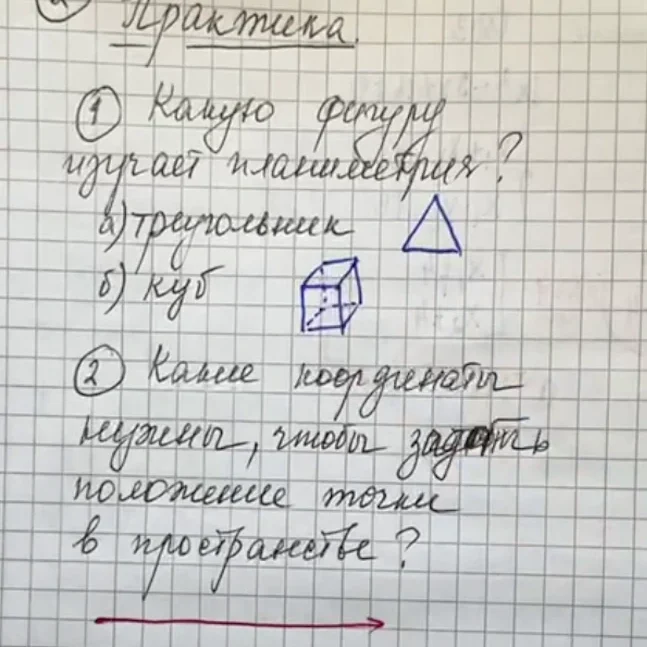 Практика.
① Какую фигуру
изучает планиметрия?
а) треугольник
б) куб
② Какие координаты
нужны, чтобы задать
положение точки
в пространстве?